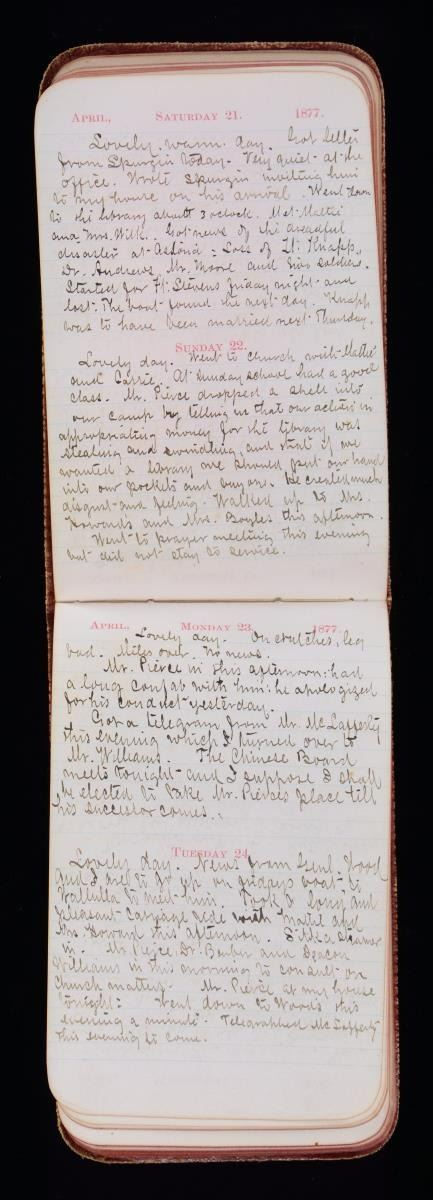 APRIL, SATURDAY 21. 1877.
Lovely warm day. Got letter
from Spurgin today. Very quiet at the
office. Wrote Spurgin inviting him
to my house on his arrival. Went down
to the library about 3 oclock. Met Mattie
and Mrs. Wilk. Got news of the dreadful
disaster at Astoria: Loss of Lt. Knapp,
Dr. Andrews, Mr. Moore and two soldiers.
Started for Ft. Stevens friday night and
lost. The boat found the next day. Knapp
was to have been married next Thursday.
SUNDAY 22.
Lovely day. Went to church with Mattie
and Carrie. At Sunday school had a good
class. Mr. Pierce dropped a shell into
our camp by telling us that our action in
appropriating money for the library was
stealing and swindling, and that if we
wanted a library we should put our hand
into our pockets and buy one. He created much
disgust and feeling. Walked up to Mrs.
Howards and Mrs. Boyles this afternoon.
Went to prayer meeting this evening
but did not stay to service.
APRIL, MONDAY 23, 1877.
Lovely day. On crutches, leg
bad. Miles over. No news.
Mr. Pierce in this afternoon: had
a long confab with him: he apologized
for his conduct yesterday.
Got a telegram from Mr. McLafferty
this evening which I turned over to
Mr. Williams. The Chinese Board
meets tonight and I suppose I shall
be elected to take Mr. Pierces place till
his successor comes.
TUESDAY 24.
Lovely day. News from Genl. Wood
and I are to go up on fridays boat to
Wallulla to meet him. Took a long and
pleasant carriage ride with Mattie and
Mrs. Howard this afternoon. Sitka steamer
in. Mr. Pierce, Dr. and Deacon
Williams in this morning to consult on
Church matters. Mr. Pierce at my house
tonight: Went down to Woods this
evening a minute. Telegraphed McLafferty
this evening to come.